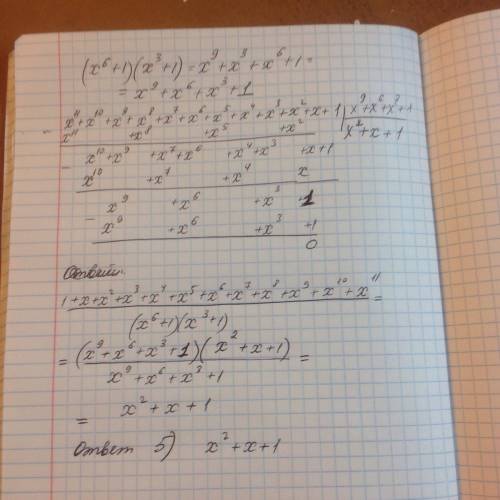 (x⁶+1)(x³+1) = x⁹+x³+x⁶+1=
= x⁹+x⁶+x³+1
- x¹¹+x¹⁰+x⁹+x⁸+x⁷+x⁶+x⁵+x⁴+x³+x²+x+1 | x⁹+x⁶+x³+1
x¹¹ +x⁸ +x⁵ +x² | x²+x+1
- x¹⁰+x⁹ +x⁷+x⁶ +x⁴+x³ +x+1
x¹⁰ +x⁷ +x⁴ x
- x⁹ +x⁶ +x³ +1
x⁹ +x⁶ +x³ +1
0
1+x+x²+x³+x⁴+x⁵+x⁶+x⁷+x⁸+x⁹+x¹⁰+x¹¹ =
(x⁶+1)(x³+1)
= (x⁹+x⁶+x³+1)(x²+x+1) =
x⁹+x⁶+x³+1
= x²+x+1
Ответ 5) x²+x+1